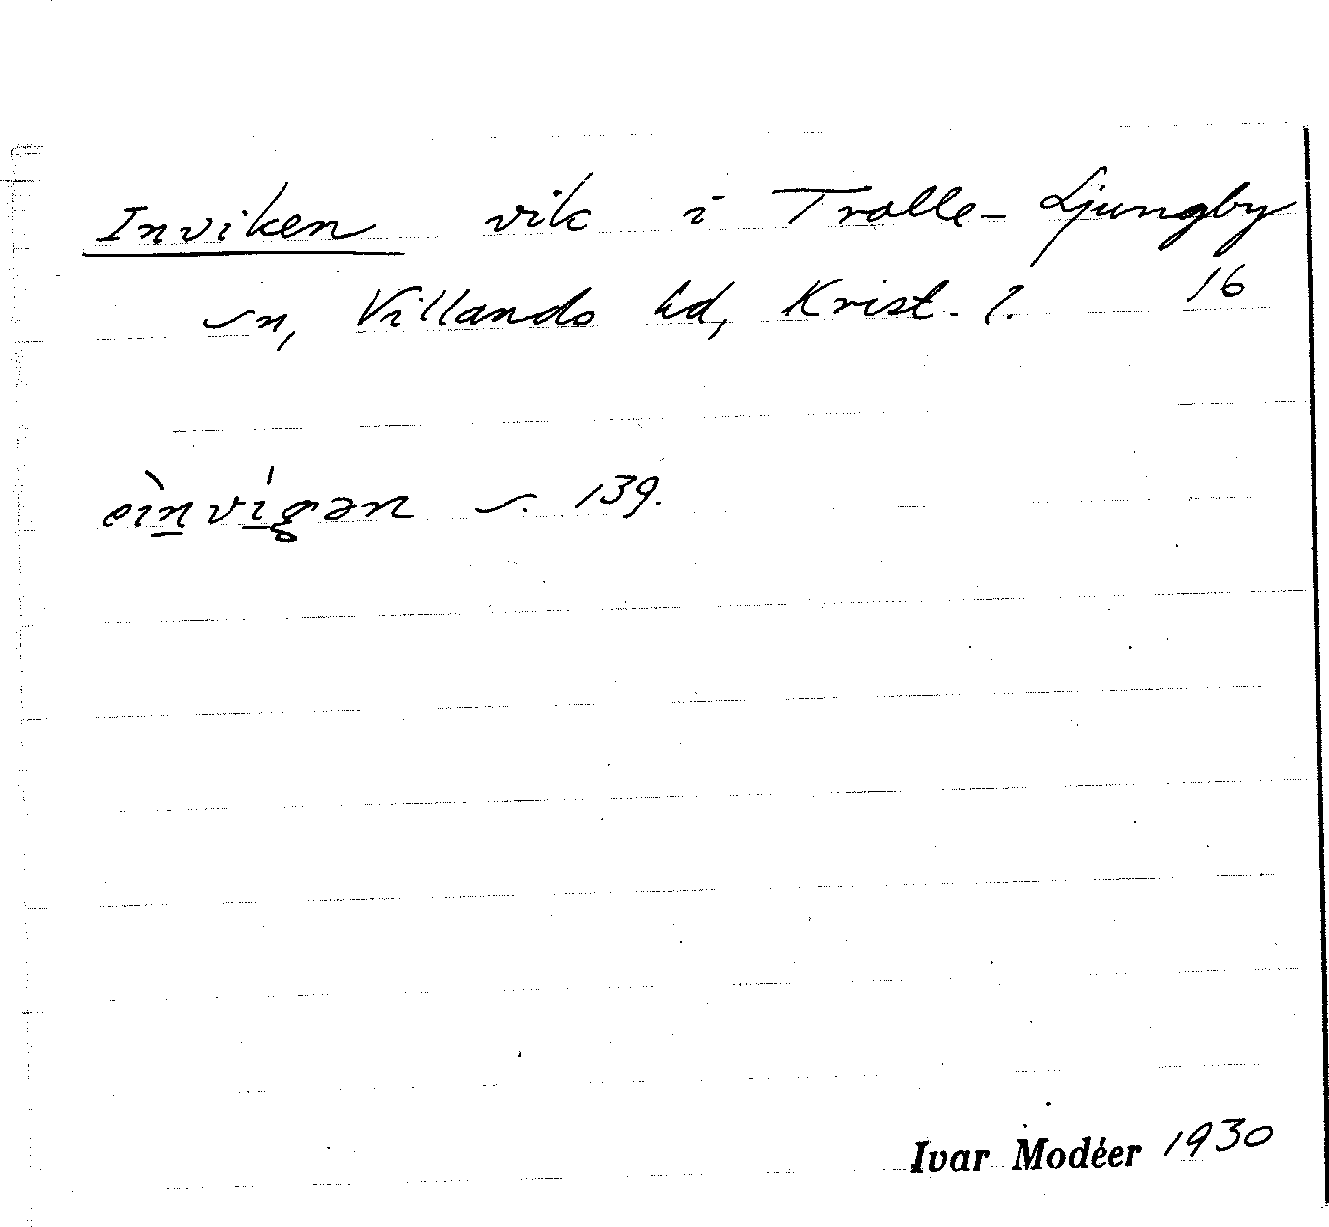 Inviken vik i Trolle-Ljungby
sn, Villands hd, Krist. l. 16
einvigən s. 139.
Ivar Modéer 1930